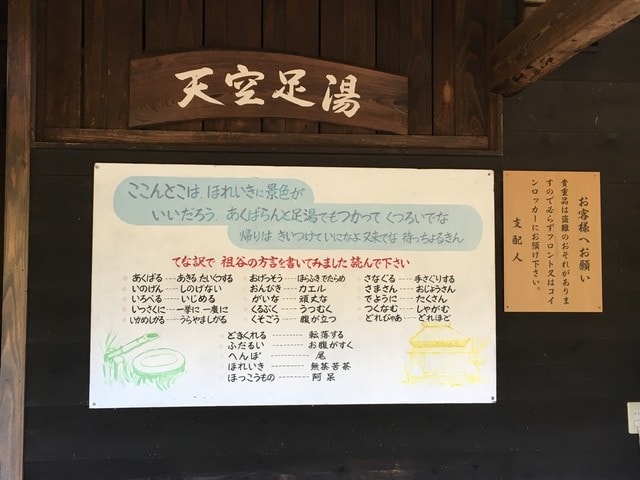 天空足湯
ここんとこは、ほれいきに景色が
いいだろう。あくばらんと足湯でもつかって くつろいでな
帰りは きいつけていになよ 又来てな 待っちょるきん
てな訳で 祖谷の方言を書いてみました 読んで下さい
あくばる ------ あきる、たいくつする
いのけん ------ しのげない
いろべる ------ いじめる
いっさくに ---- 一挙に 一度に
いかめしがる ---- うらやましがる
おげっそう ---- ほらふきでたらめ
おんびき ------ カエル
がいな ------ 頑丈な
くるぶく ------ うつむく
くそごう ------ 腹が立つ
さなぐる ------ 手さぐりする
さまさん ------ おじょうさん
でように ------ たくさん
つくなむ ------ しゃがむ
どれびゃあ ---- どれほど
どきくれる ------ 転落する
ふだるい ------ お腹がすく
へんぽ ------ 尾
ほれいき ------ 無茶苦茶
ほっこうもの ------ 阿呆
お客様へお願い
貴重品は盗難のおそれがありま
すので必らずフロント又はコイ
ンロッカーにお預け下さい。
支配人